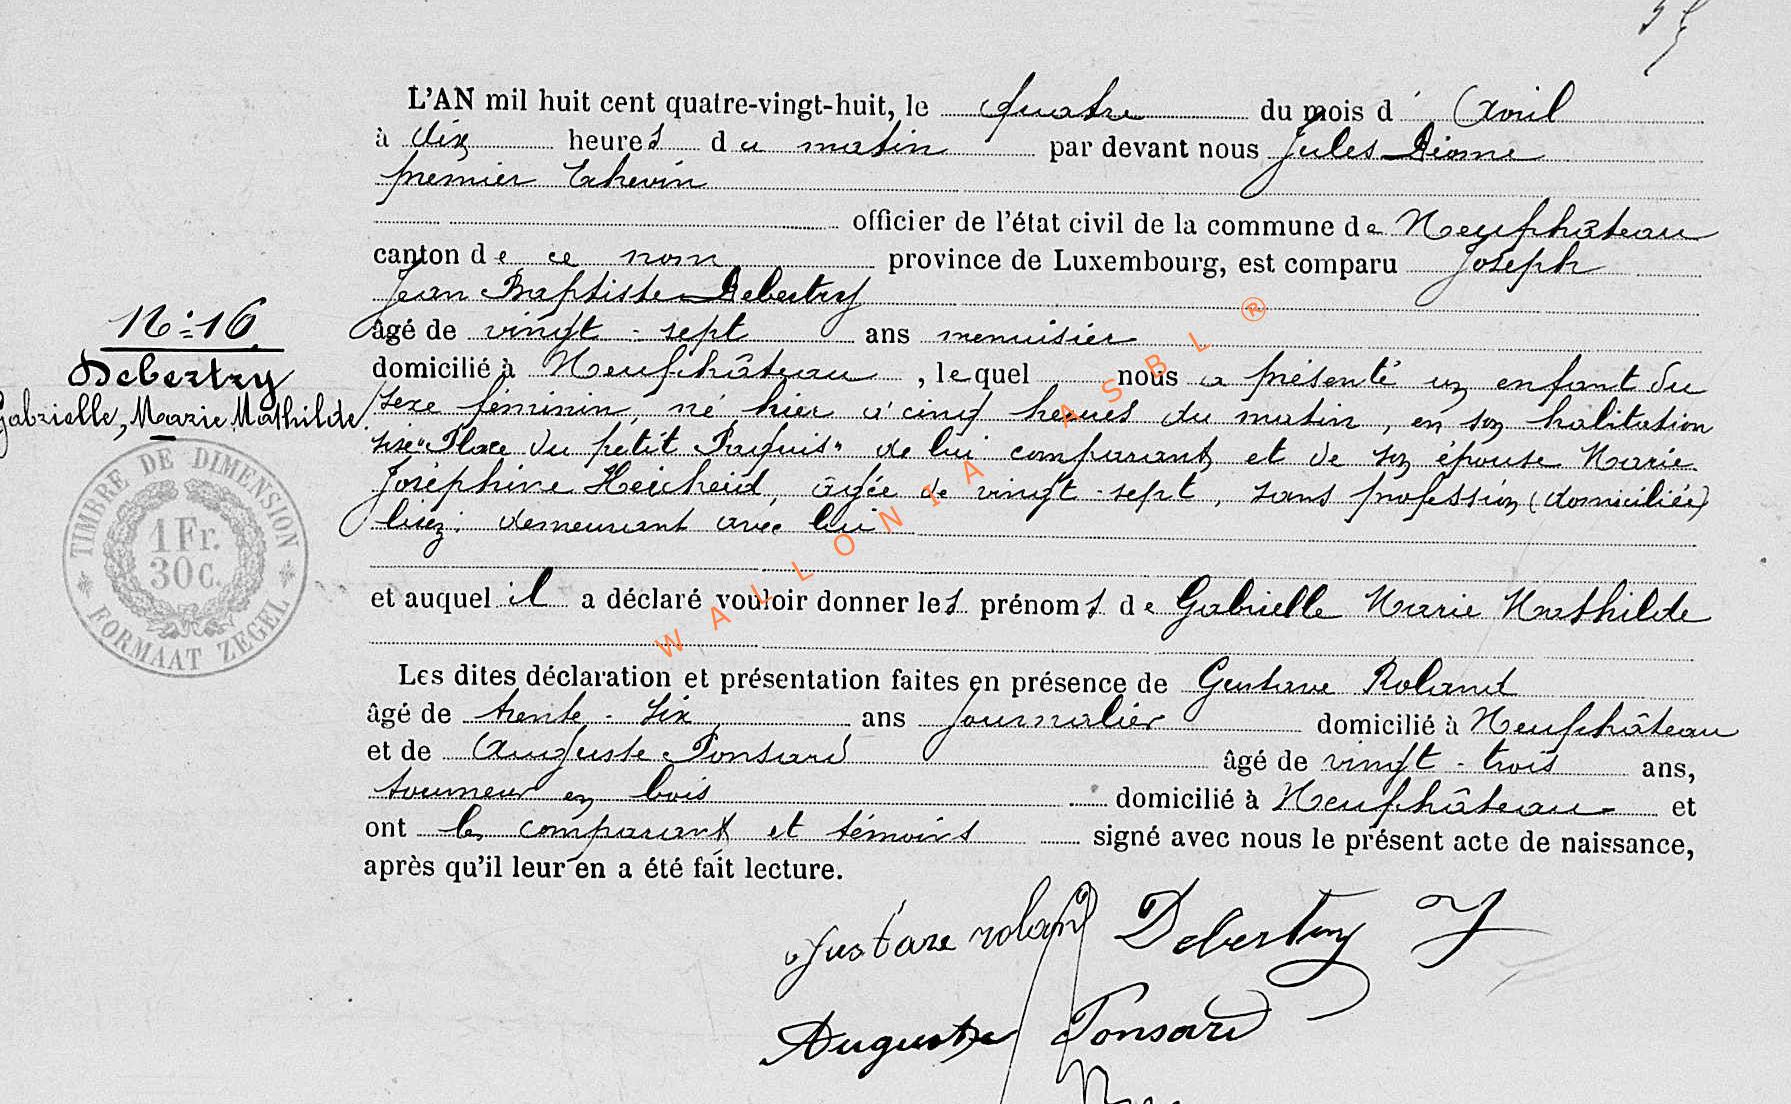 L'AN mil huit cent quatre-vingt-huit, le quatre du mois d' Avril
à dix heures du matin par devant nous Jules
premier Echevin
officier de l'état civil de la commune de Neufchâteau
canton de ce nom province de Luxembourg, est comparu Joseph
Jean Baptiste Debertry
âgé de vingt-sept ans menuisier
domicilié à Neufchâteau, lequel nous a présenté un enfant du
sexe féminin, né hier à cinq heures du matin, en son habitation
sise "Place du petit Paquis" de lui comparant et de son épouse Marie
Joséphine Heicheid, âgée de vingt-sept, sans profession (domiciliée)
lisez: demeurant avec lui
et auquel il a déclaré vouloir donner les prénoms de Gabrielle Marie Mathilde
Les dites déclaration et présentation faites en présence de Gustave Roland
âgé de trente-six ans journalier domicilié à Neufchâteau
et de Auguste Ponsard âgé de vingt-trois ans,
tourneur en bois domicilié à Neufchâteau et
ont les comparant et témoins signé avec nous le présent acte de naissance,
après qu'il leur en a été fait lecture.
Gustave roland Debertry J
Auguste Ponsard
N°: 16.
Debertry
Gabrielle, Marie Mathilde.
TIMBRE DE DIMENSION
1 Fr.
30 C.
FORMAAT ZEGEL
WALLONIA ASBL ®